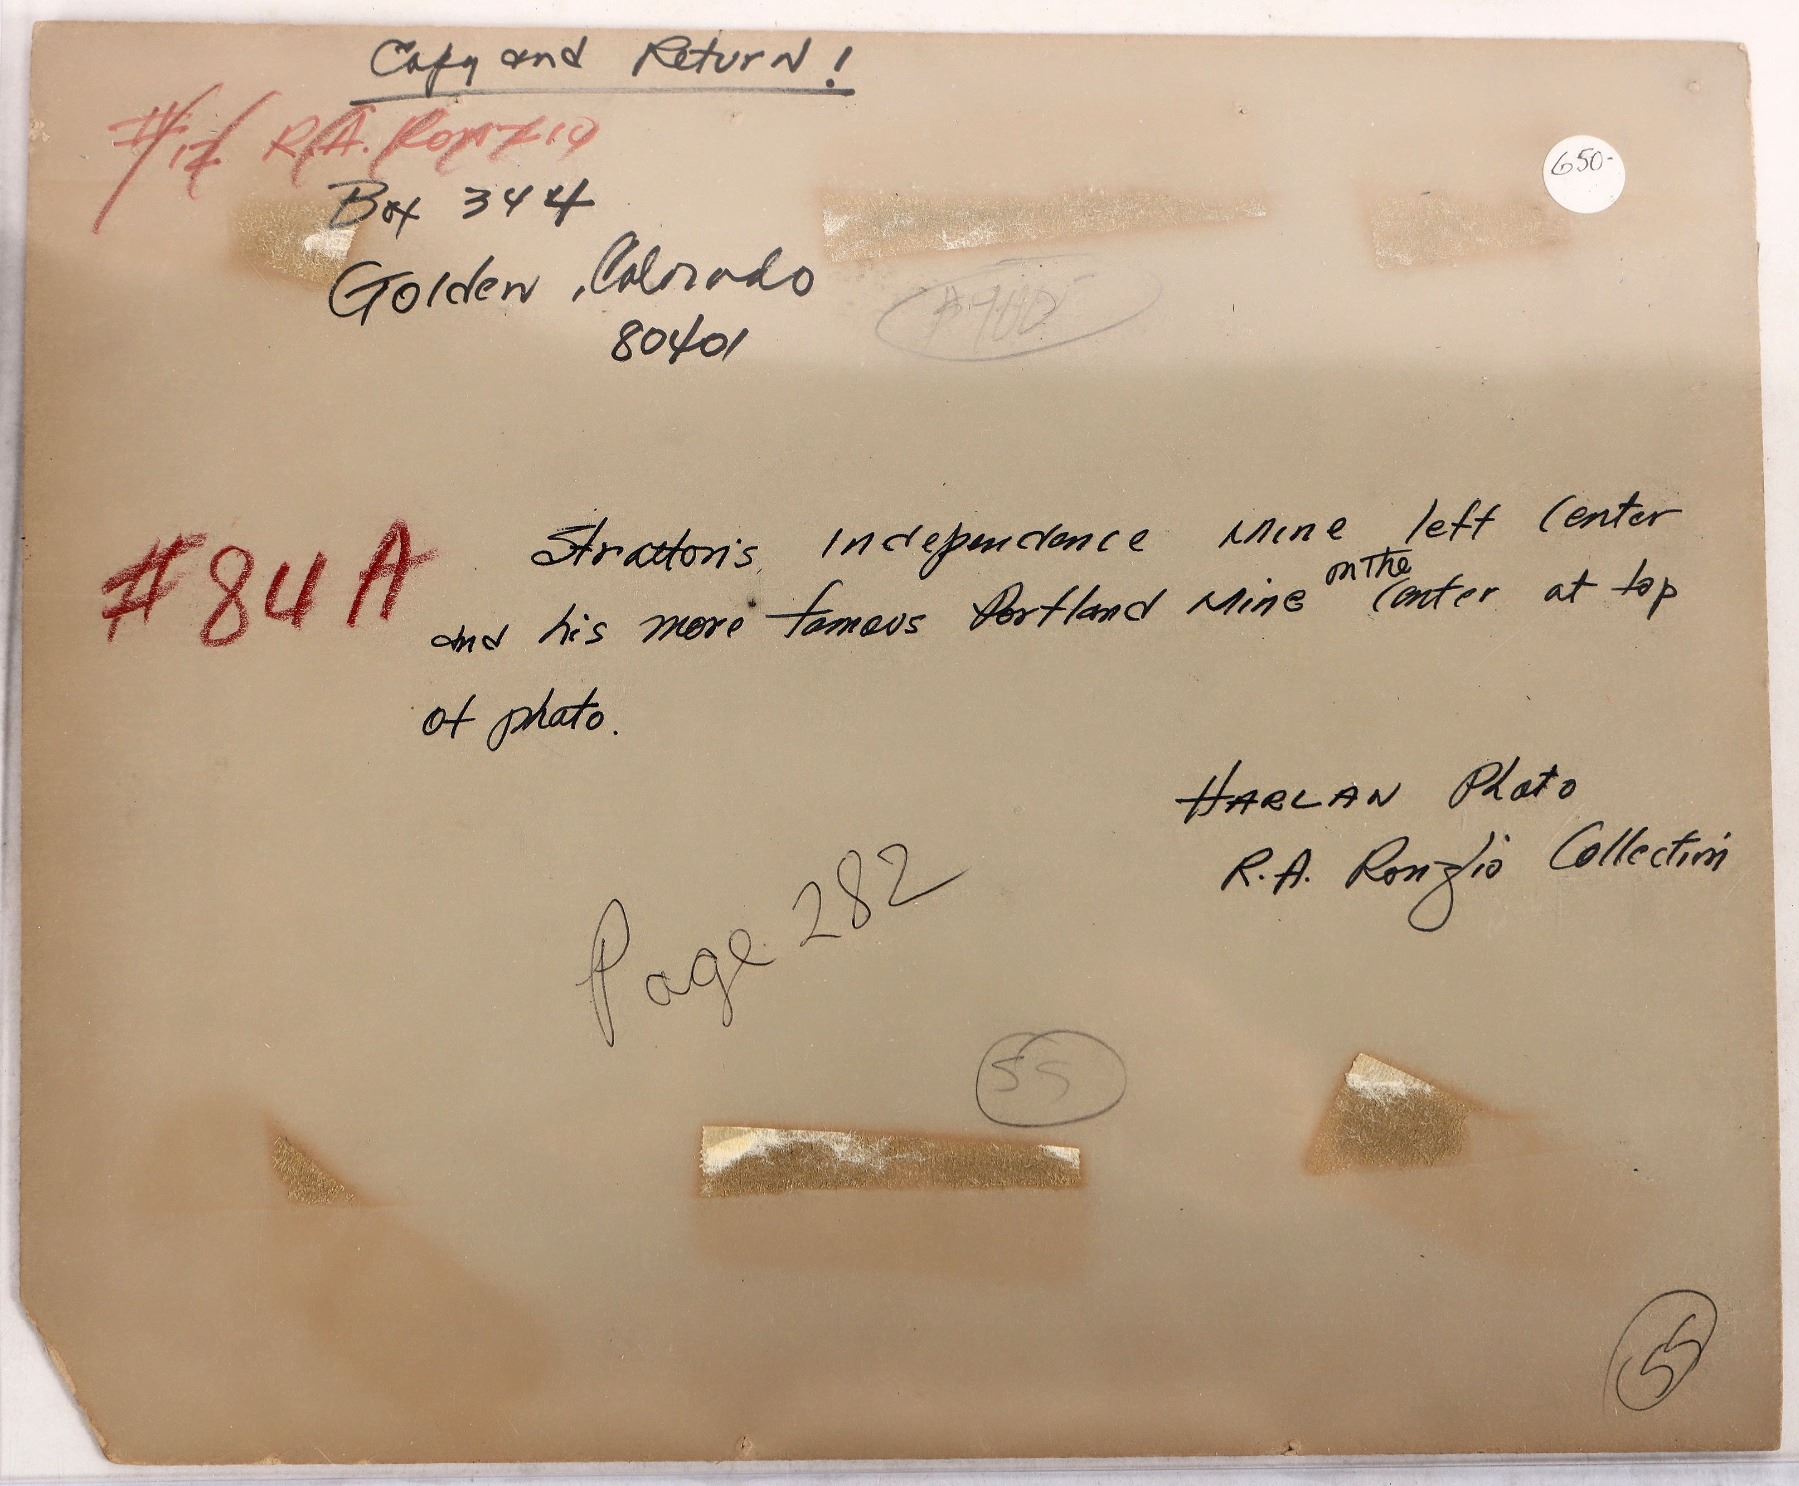 Copy and Return!
R.A. Ronzio
Box 344
650-
Golden, Colorado
80401
#84A
Stratton's Independence Mine left Center
and his more famous Portland Mine on the Center at top
of photo.
HARLAN Photo
R.A. Ronzio Collection
Page 282
55
55